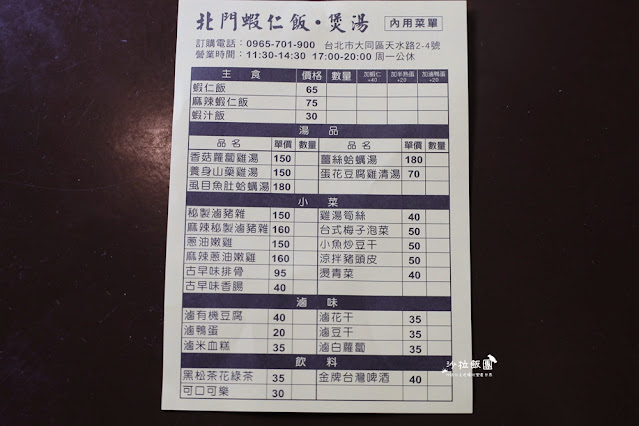 北門蝦仁飯·煲湯 內用菜單
訂購電話：0965-701-900 台北市大同區天水路2-4號
營業時間：11:30-14:30 17:00-20:00 周一公休
主食 價格 數量 加蝦仁+40 加半熟蛋+20 加滷鴨蛋+20
蝦仁飯 65
麻辣蝦仁飯 75
蝦汁飯 30
湯品
品名 單價 數量 品名 單價 數量
香菇蘿蔔雞湯 150 薑絲蛤蠣湯 180
養身山藥雞湯 150 蛋花豆腐雞清湯 70
虱目魚肚蛤蠣湯 180
小菜
秘製滷豬雜 150 雞湯筍絲 40
麻辣秘製滷豬雜 160 台式梅子泡菜 50
蔥油嫩雞 150 小魚炒豆干 50
麻辣蔥油嫩雞 160 涼拌豬頭皮 50
古早味排骨 95 燙青菜 40
古早味香腸 40
滷味
滷有機豆腐 40 滷花干 35
滷鴨蛋 20 滷豆干 35
滷米血糕 35 滷白蘿蔔 35
飲料
黑松茶花綠茶 35 金牌台灣啤酒 40
可口可樂 30
沙拉飯團